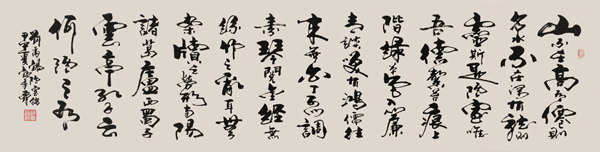 山不在高有仙則
名水不在深有龍則
靈斯是陋室唯
吾德馨苔痕上
階綠草色入簾
青談笑有鴻儒往
來無白丁可以調
素琴閱金經無
絲竹之亂耳無
案牘之勞形南陽
諸葛廬西蜀子
雲亭孔子云
何陋之有
劉禹錫陋室銘